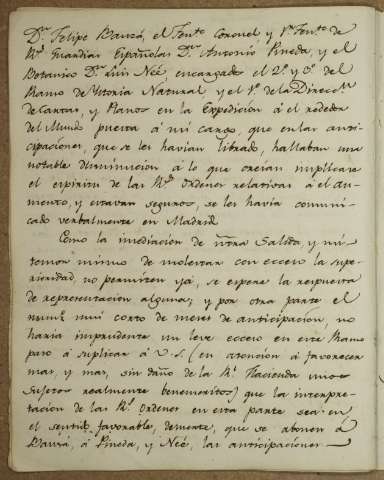 Dn. Felipe Bauzá, el Tente. Coronel, y 1er. Tente. de
Rs. Guardias Españolas Dn. Antonio Pineda, y el
Botanico Dn. Luis Neé, encargados el 2º. y 3º. del
Ramo de Istoria Natural y el 1º. de la Direccn.
de Cartas, y Planos en la Expedicion á el rededor
del Mundo puesta á mi cargo, que en las anti-
cipaciones, que se les havian librado, hallaban una
notable diminucion á lo que creian implicase
el espiritu de las Rs. ordenes relativas á el au-
mento, y estavan seguros, se les havia comuni-
cado verbalmente en Madrid.
Como la imediacion de ntra. Salida, y mi
temor mismo de molestar con exceso la supe-
rioridad, no permiten ya, se espere la respuesta
de representacion alguna; y por otra parte el
numo. muy corto de meses de anticipacion, no
haria imprudente un leve exceso en este Ramo
paso á suplicar á V.S. (en atencion á favorecer
mas, y mas, sin daño de la Rl. Hacienda unos
Sujetos realmente benemeritos) que la interpre-
tacion de las Rs. ordenes en esta parte sea en
el sentido favorable, demente, que se abonen á
Bauzá, á Pineda, y Neé, las anticipaciones